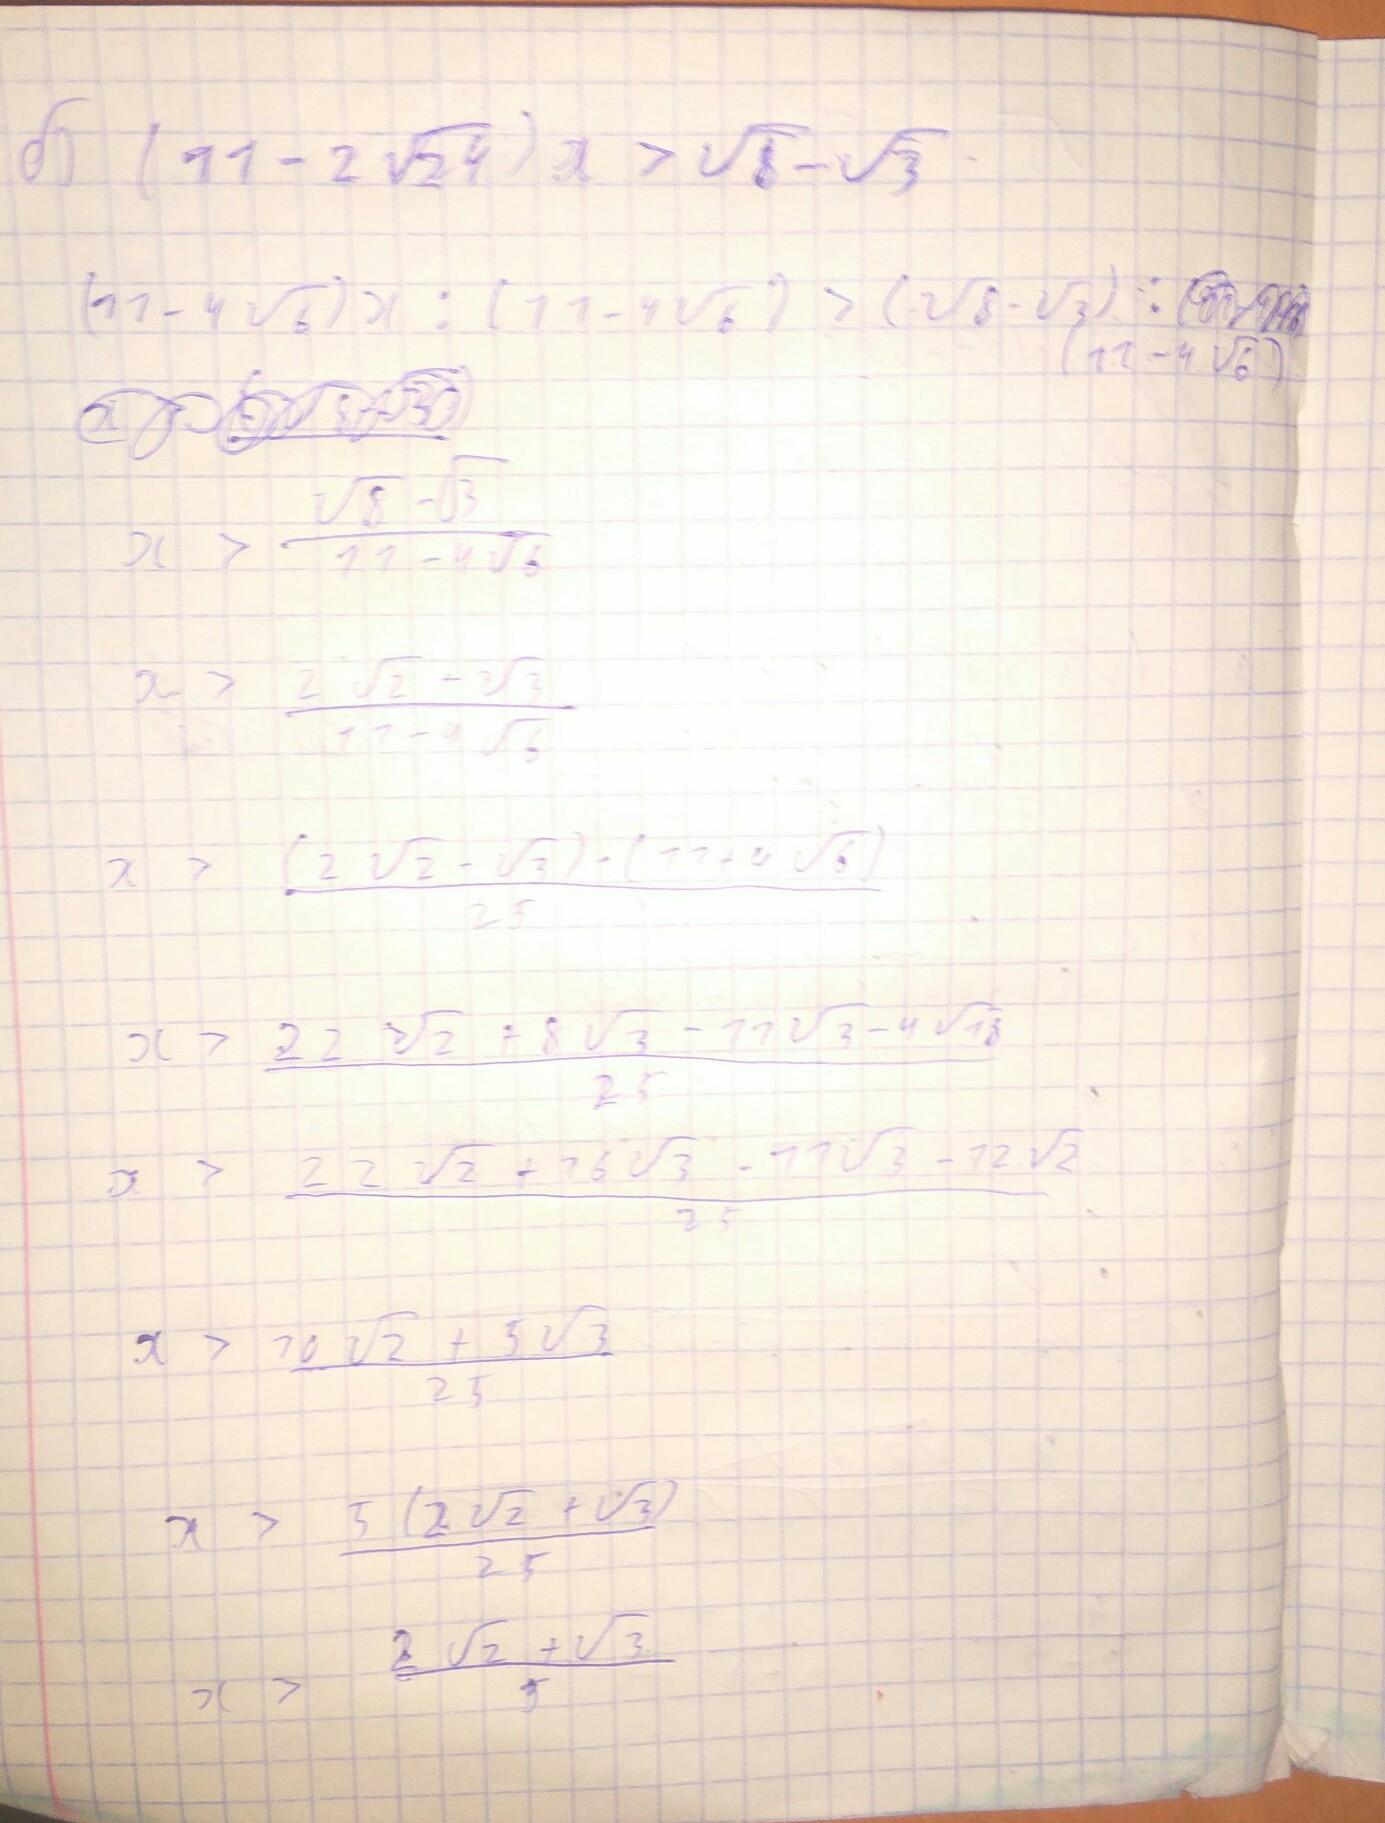 б) (11-2√24)x > √8-√3
(11-4√6)x : (11-4√6) > (√8-√3) :
(11-4√6)
x > (√8-√3)/(11-4√6)
x > (2√2-√3)/(11-4√6)
x > ((2√2-√3)·(11+4√6))/25
x > (22√2+8√3-11√3-4√18)/25
x > (22√2+16√3-11√3-12√2)/25
x > (10√2+5√3)/25
x > (5(2√2+√3))/25
x > (2√2+√3)/5